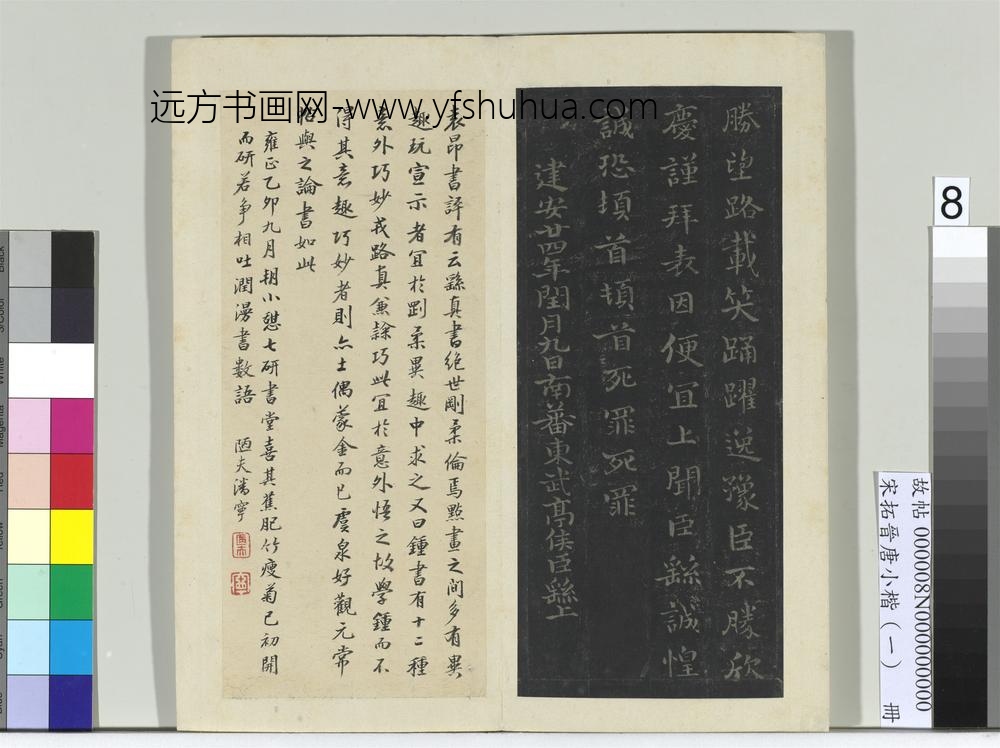 远方书画网-www.yfshuhua.com
勝望路載笑踊躍逸豫臣不勝欣
慶謹拜表因便宜上聞臣繇誠惶
誠恐頓首頓首死罪死罪
建安廿四年閏月九日南蕃東武亭侯臣繇上
袁昂書評有云繇真書絕世剛柔倫焉點畫之間多有異
趣玩宣示者宜於剛柔異趣中求之又曰鍾書有十二種
意外巧妙戎路真兼隸巧此宜於意外悟之故學鍾而不
得其意趣巧妙者則亦土偶蒙金而已虞泉好觀元常
與之論書如此
雍正乙卯九月朔小憩七研書堂喜其蕉肥竹瘦菊已初開
而研若爭相吐潤漫書數語 陋夫潘寧
8
故帖 000008N000000000
宋拓晉唐小楷（一） 冊